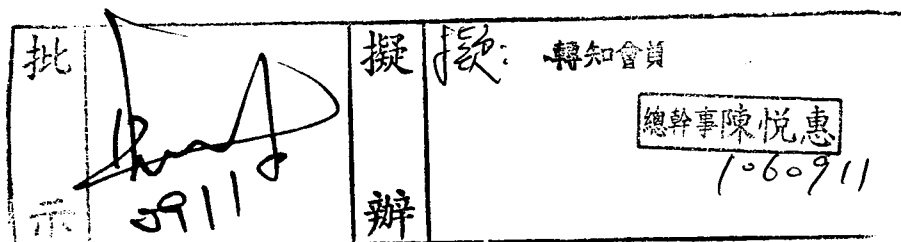 批示
0911
擬辦
擬: 轉知會員
總幹事陳悦惠
1060911